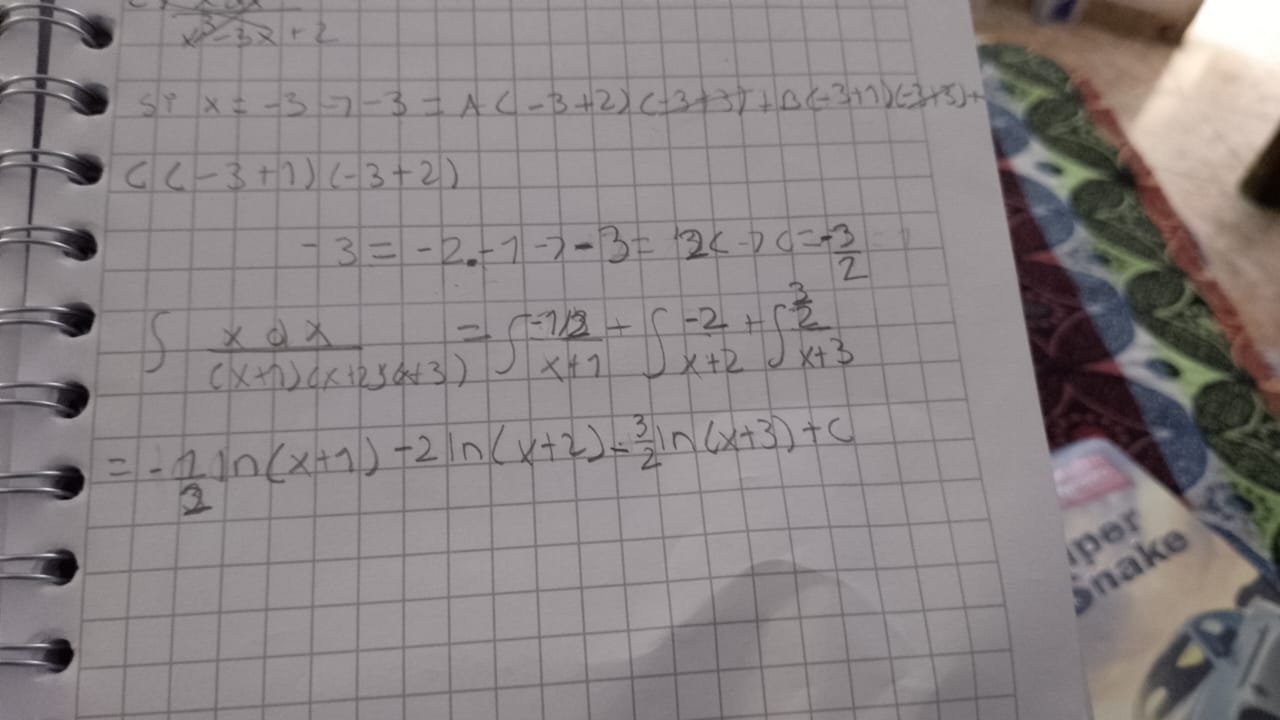 x³-3x+2
Si x = -3 → -3 = A(-3+2)(-3+3)+B(-3+1)(-3+3)+
C(-3+1)(-3+2)
-3 = -2.-1 → -3 = 2C → C = -3/2
∫ x dx / (x+1)(x+2)(x+3) = ∫ -1/2 / x+1 + ∫ -2 / x+2 + ∫ 3/2 / x+3
= -1/2 ln(x+1) -2 ln(x+2) - 3/2 ln(x+3) + C
per
Snake